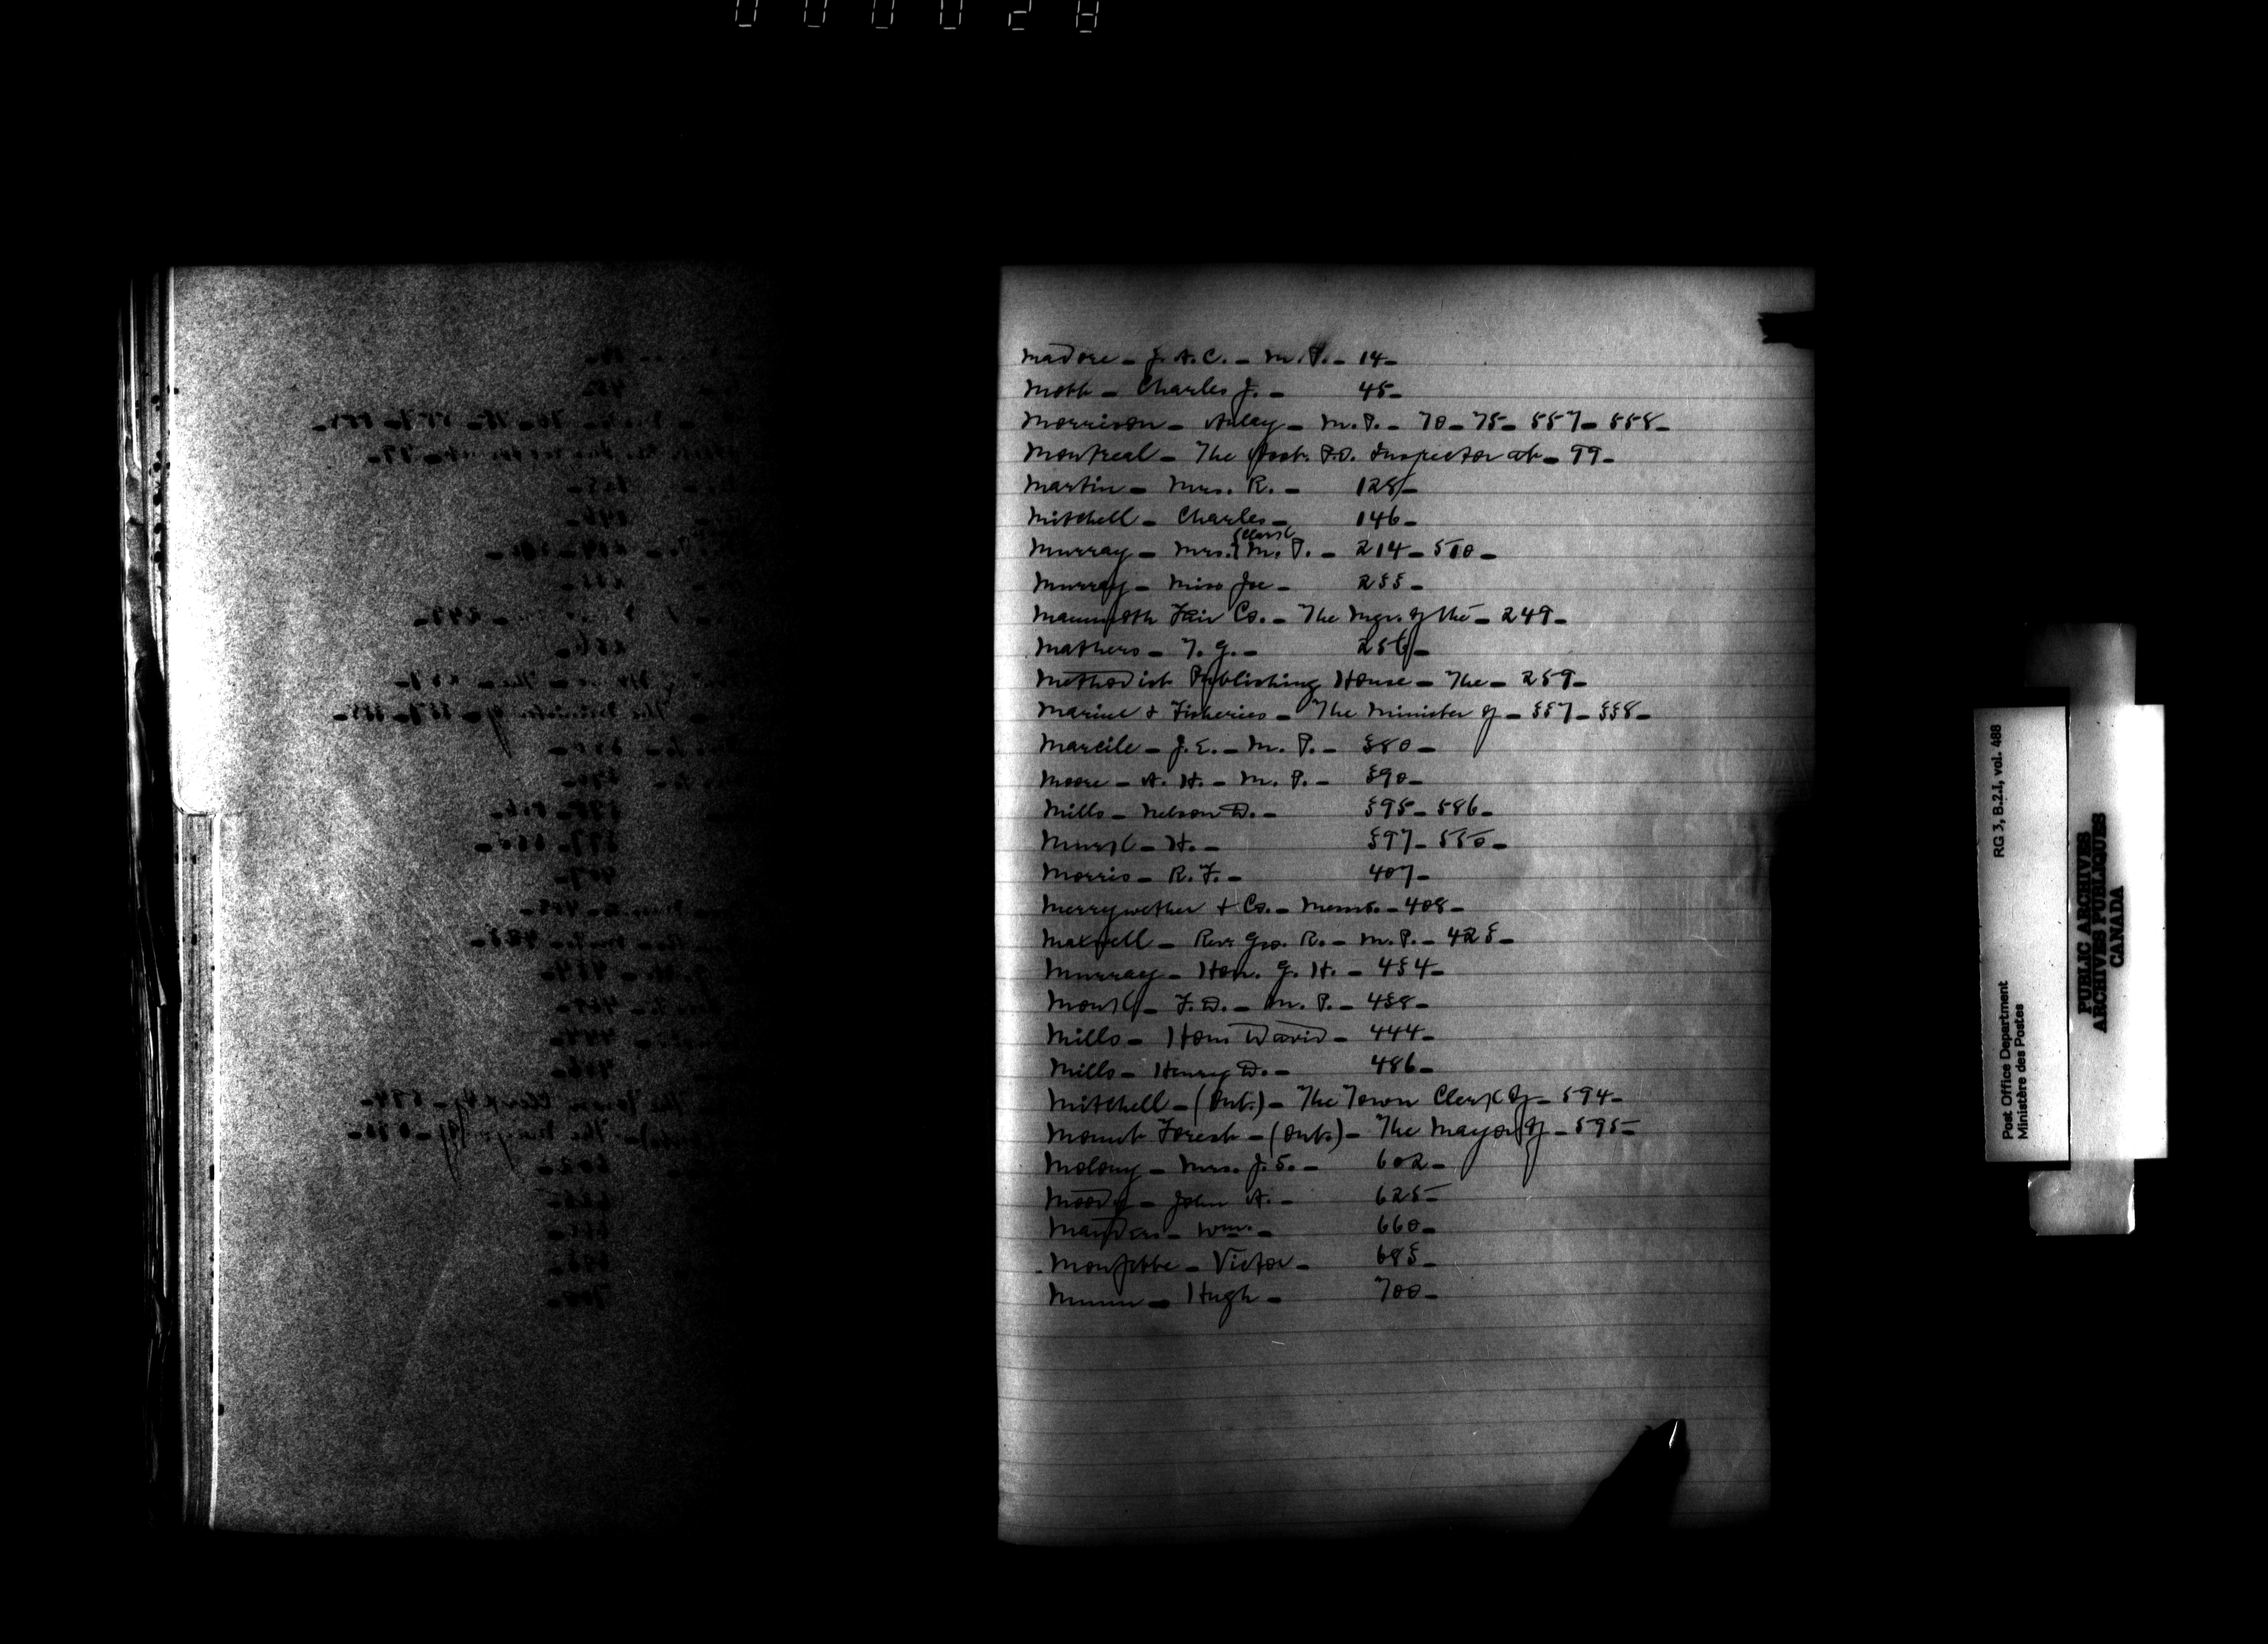 000028
Madore - J. A. C. - M. P. - 14 -
Moth - Charles J. - 45 -
Morrison - Aulay - M. P. - 70 - 75 - 557 - 558 -
Montreal - The Asst. P.O. Inspector at - 99 -
Martin - Mrs. R. - 128 -
Mitchell - Charles - 146 -
Murray - Mrs. M. P. - 214 - 510 -
Murray - Miss Joe - 233 -
Mammoth Fair Co. - The Mgr. of the - 249 -
Mathers - T. G. - 256 -
Methodist Publishing House - The - 259 -
Marine & Fisheries - The Minister of - 337 - 338 -
Marcile - J. E. - M. P. - 380 -
Moore - A. H. - M. P. - 390 -
Mills - Nelson D. - 395 - 586 -
H. - 397 - 550 -
Morris - R. F. - 407 -
Merrywether & Co. - Messrs. - 408 -
Maxwell - Rev. Geo. R. - M. P. - 423 -
Murray - Hon. G. H. - 434 -
Monk - F. D. - M. P. - 438 -
Mills - Hon. David - 444 -
Mills - Henry D. - 486 -
Mitchell - (Ont.) - The Town Clerk of - 594 -
Mount Forest - (Ont.) - The Mayor of - 595 -
Molony - Mrs. J. S. - 602 -
Moody - John A. - 625 -
Manders - Wm. - 660 -
Monfette - Victor - 683 -
Munn - Hugh - 700 -
RG 3, B.2.I, vol. 488
Post Office Department
Ministère des Postes
PUBLIC ARCHIVES
ARCHIVES PUBLIQUES
CANADA